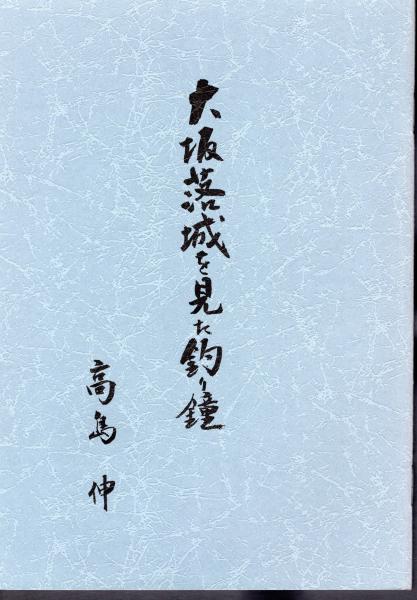 大坂落城を見た釣り鐘
高島伸